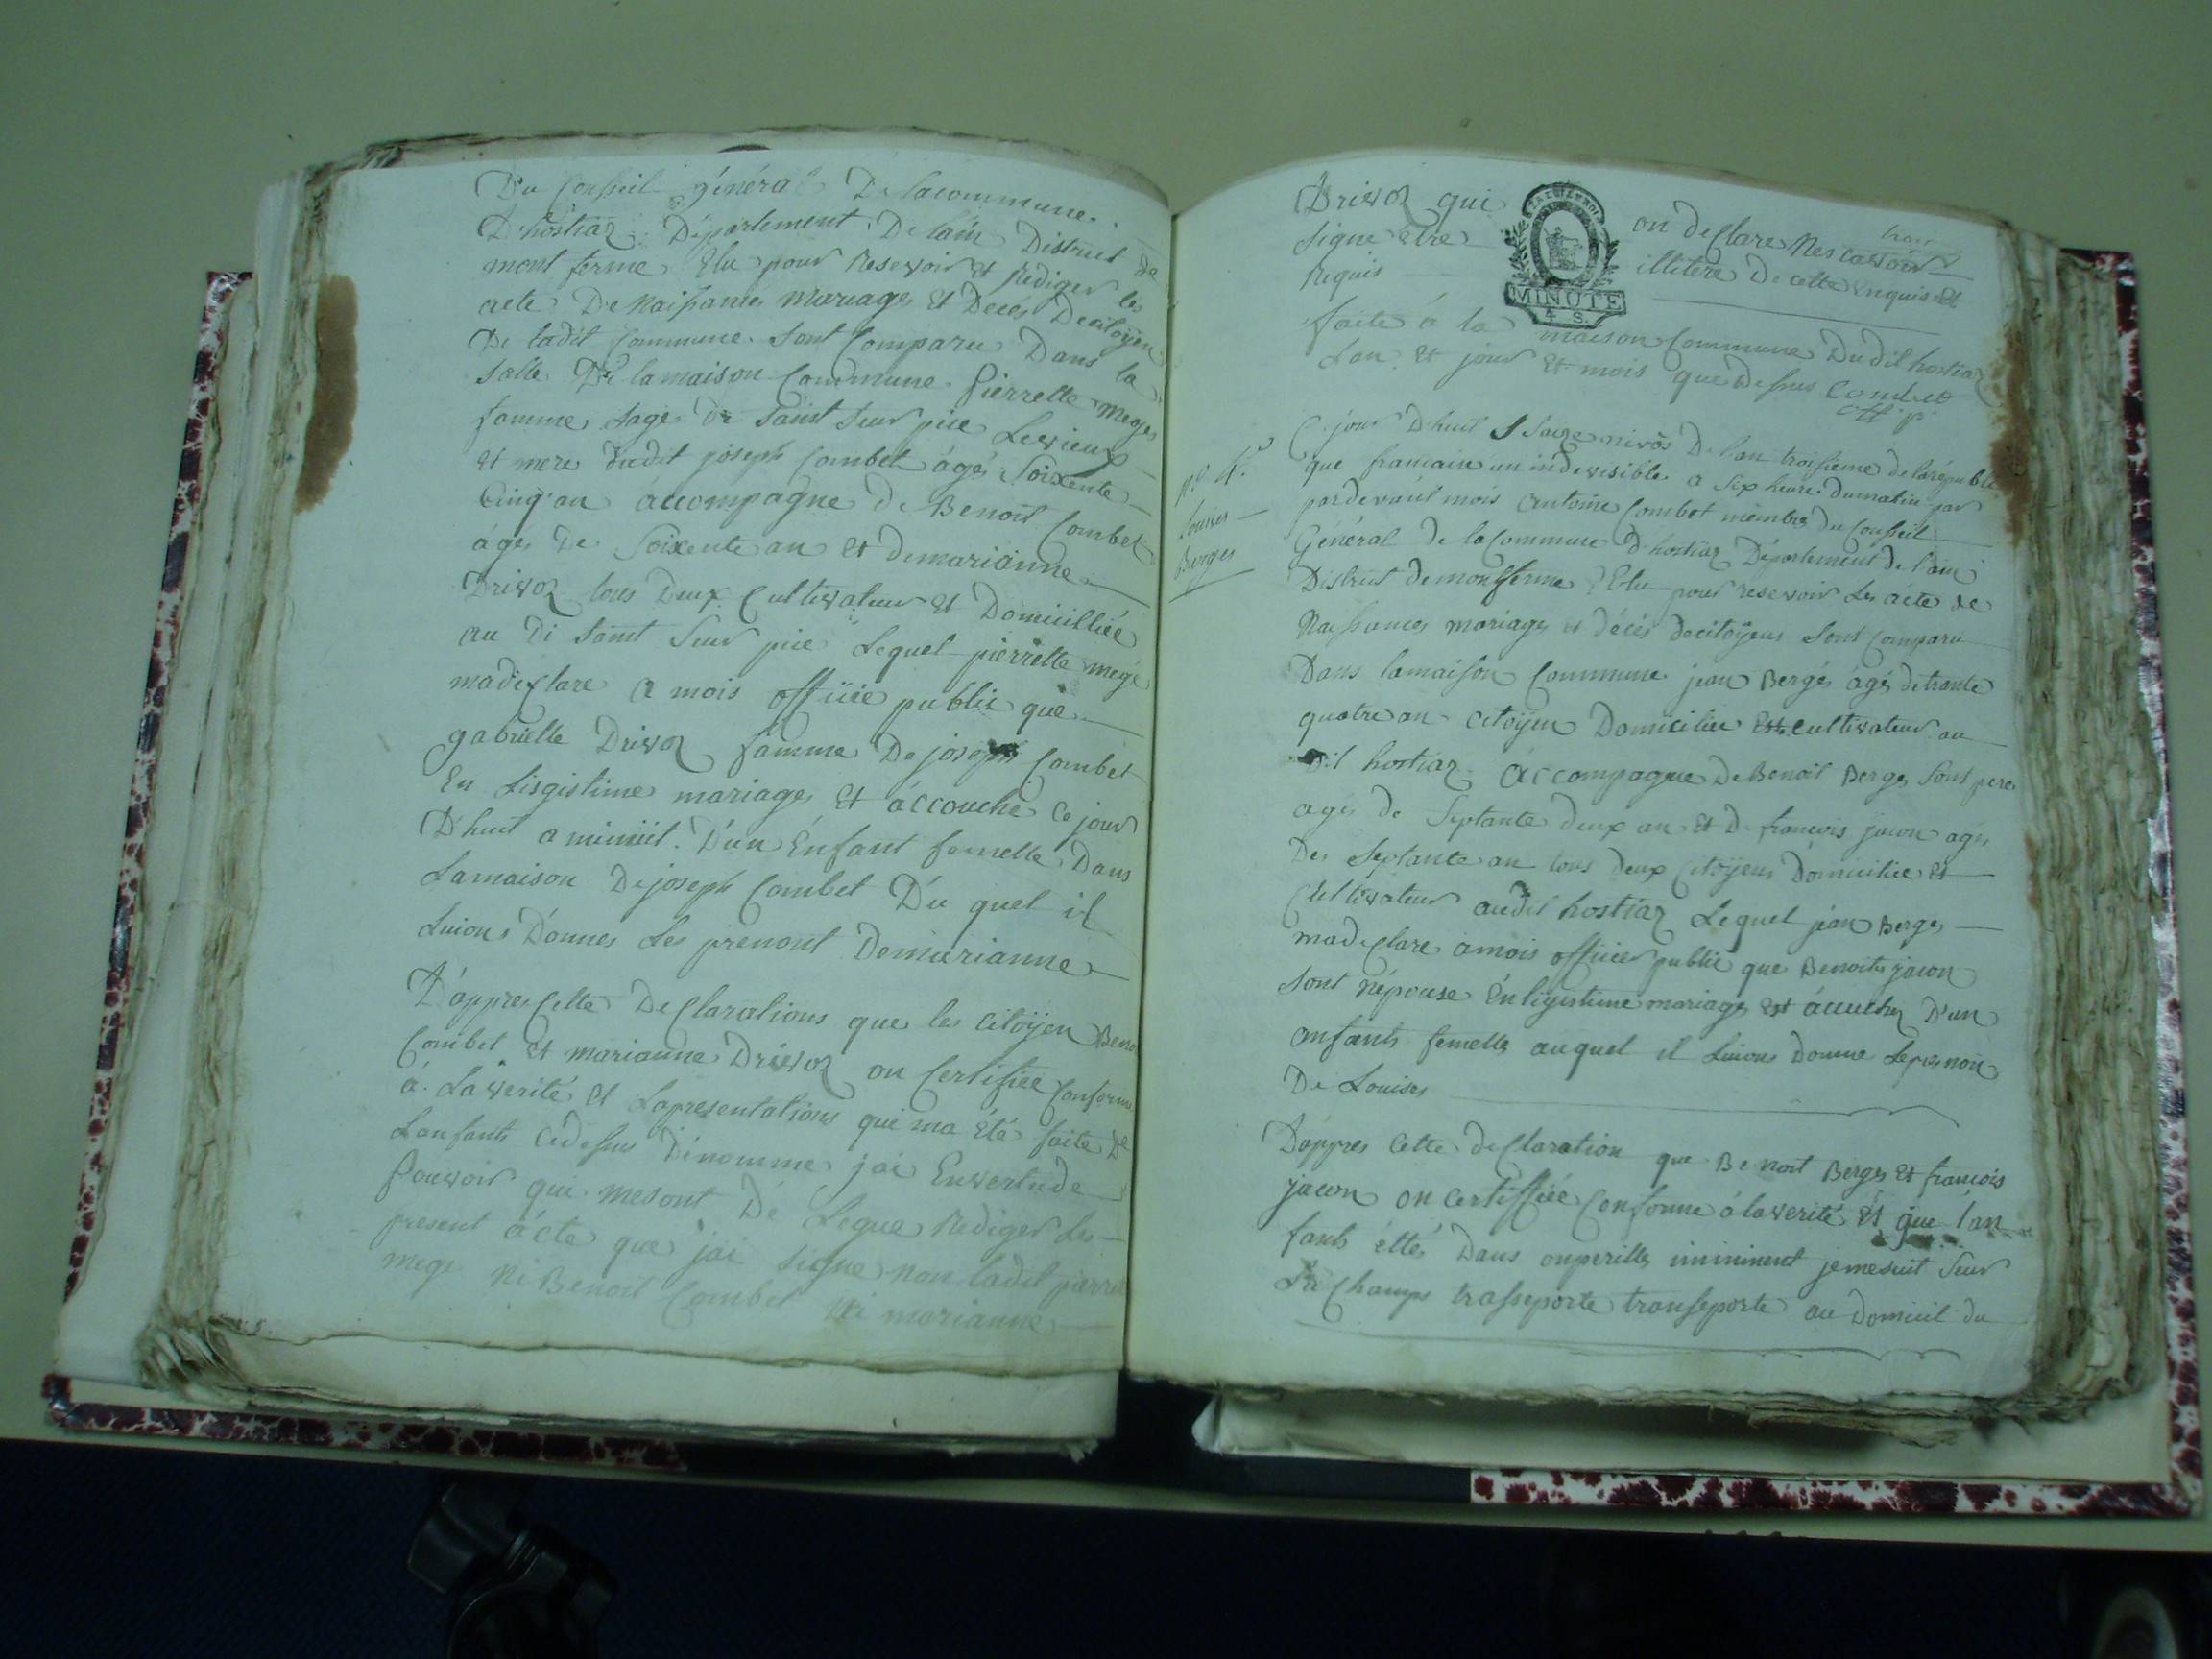 Du Conseil général De lacommune
D'hostiaz Département De lain District de
mont ferme Elu pour Resevoir et Rediger les
acte De Naissances mariages et Decés Decitoÿen
De ladit Commune Sont Comparu Dans la
Salle De lamaison Commune pierrette mege
famme sage de Saint Seur pice Levieux
et mere dudit joseph Combet ágés Soixente
Cinq'an áccompagne de Benoit Combet
áges De Soixente an et demarianne
Drivoz tous Deux Cultivateur et Domicilliée
au di Saint Seur pice Lequel pierrette mege
madeclare a mois officie public que
gabrielle Drivoz famme De joseph Combet
En Lisgistime mariage et áccouche Ce jour
D'huit a minuit D'un Enfant femelle Dans
Lamaison Dejoseph Combet Du quel il
Luions Donnes Les prenont Demarianne
D'áppres Cette Declarations que les Citoÿen Beno
Combet et marianne Drivoz on Certifiée Conforme
á Laverité et Lapresentations qui ma été faite De
Lanfants Cidessus Dénomme jai Envertude
pouvoir qui mesont De Legue Rediger Les
present ácte que jai signe non ladit pierret
mege Ni Benoit Combet Ni marianne
Drivoz qui on declare Nes cavoir
signe etre illitere De cette Enquis et
Requis
MINUTE
4 S.
faite á la maison Commune Dudit hostiaz
Lan et jour et mois que Dessus Combet
off p
Ce jour D'huit Saize nivôs De lan troisieme de larépubli
que francaise un indevisible a Sex heure dumatin par
pardevant mois Antoine Combet membre du Conseil
Général de la Commune d'hostiaz Département de l'ain
District demontferme Elu pour resevoir Les ácte de
Naissances mariages et décés decitoÿens Sont Comparu
Dans lamaison Commune jean Bergé ágé detrante
quatre an Citoÿen Domicilie et cultivateur au
Dit hostiaz áccompagne De Benoit Berges Sont pere
ages de Septante deux an et De francois jacon ages
Des Septante an tous deux Citoÿens Domicilie et
Cultivateur audit hostiaz Lequel jean Berges
madeclare amois officier public que Benoite jacon
Sont népouse En ligistime mariage est áccuchez D'un
anfants femelle auquel il Luions Donne Leprenom
De Louises
n.o 4.
Louises
Berges
D'áppres Cette déclaration que Benoit Berges et francois
jacon on Certiffiée Conforme á laverité et que l'an
fants éttés Dans onperille imininent jemesuit Seur
Le Champs trasseporte transeporte au Domicil du